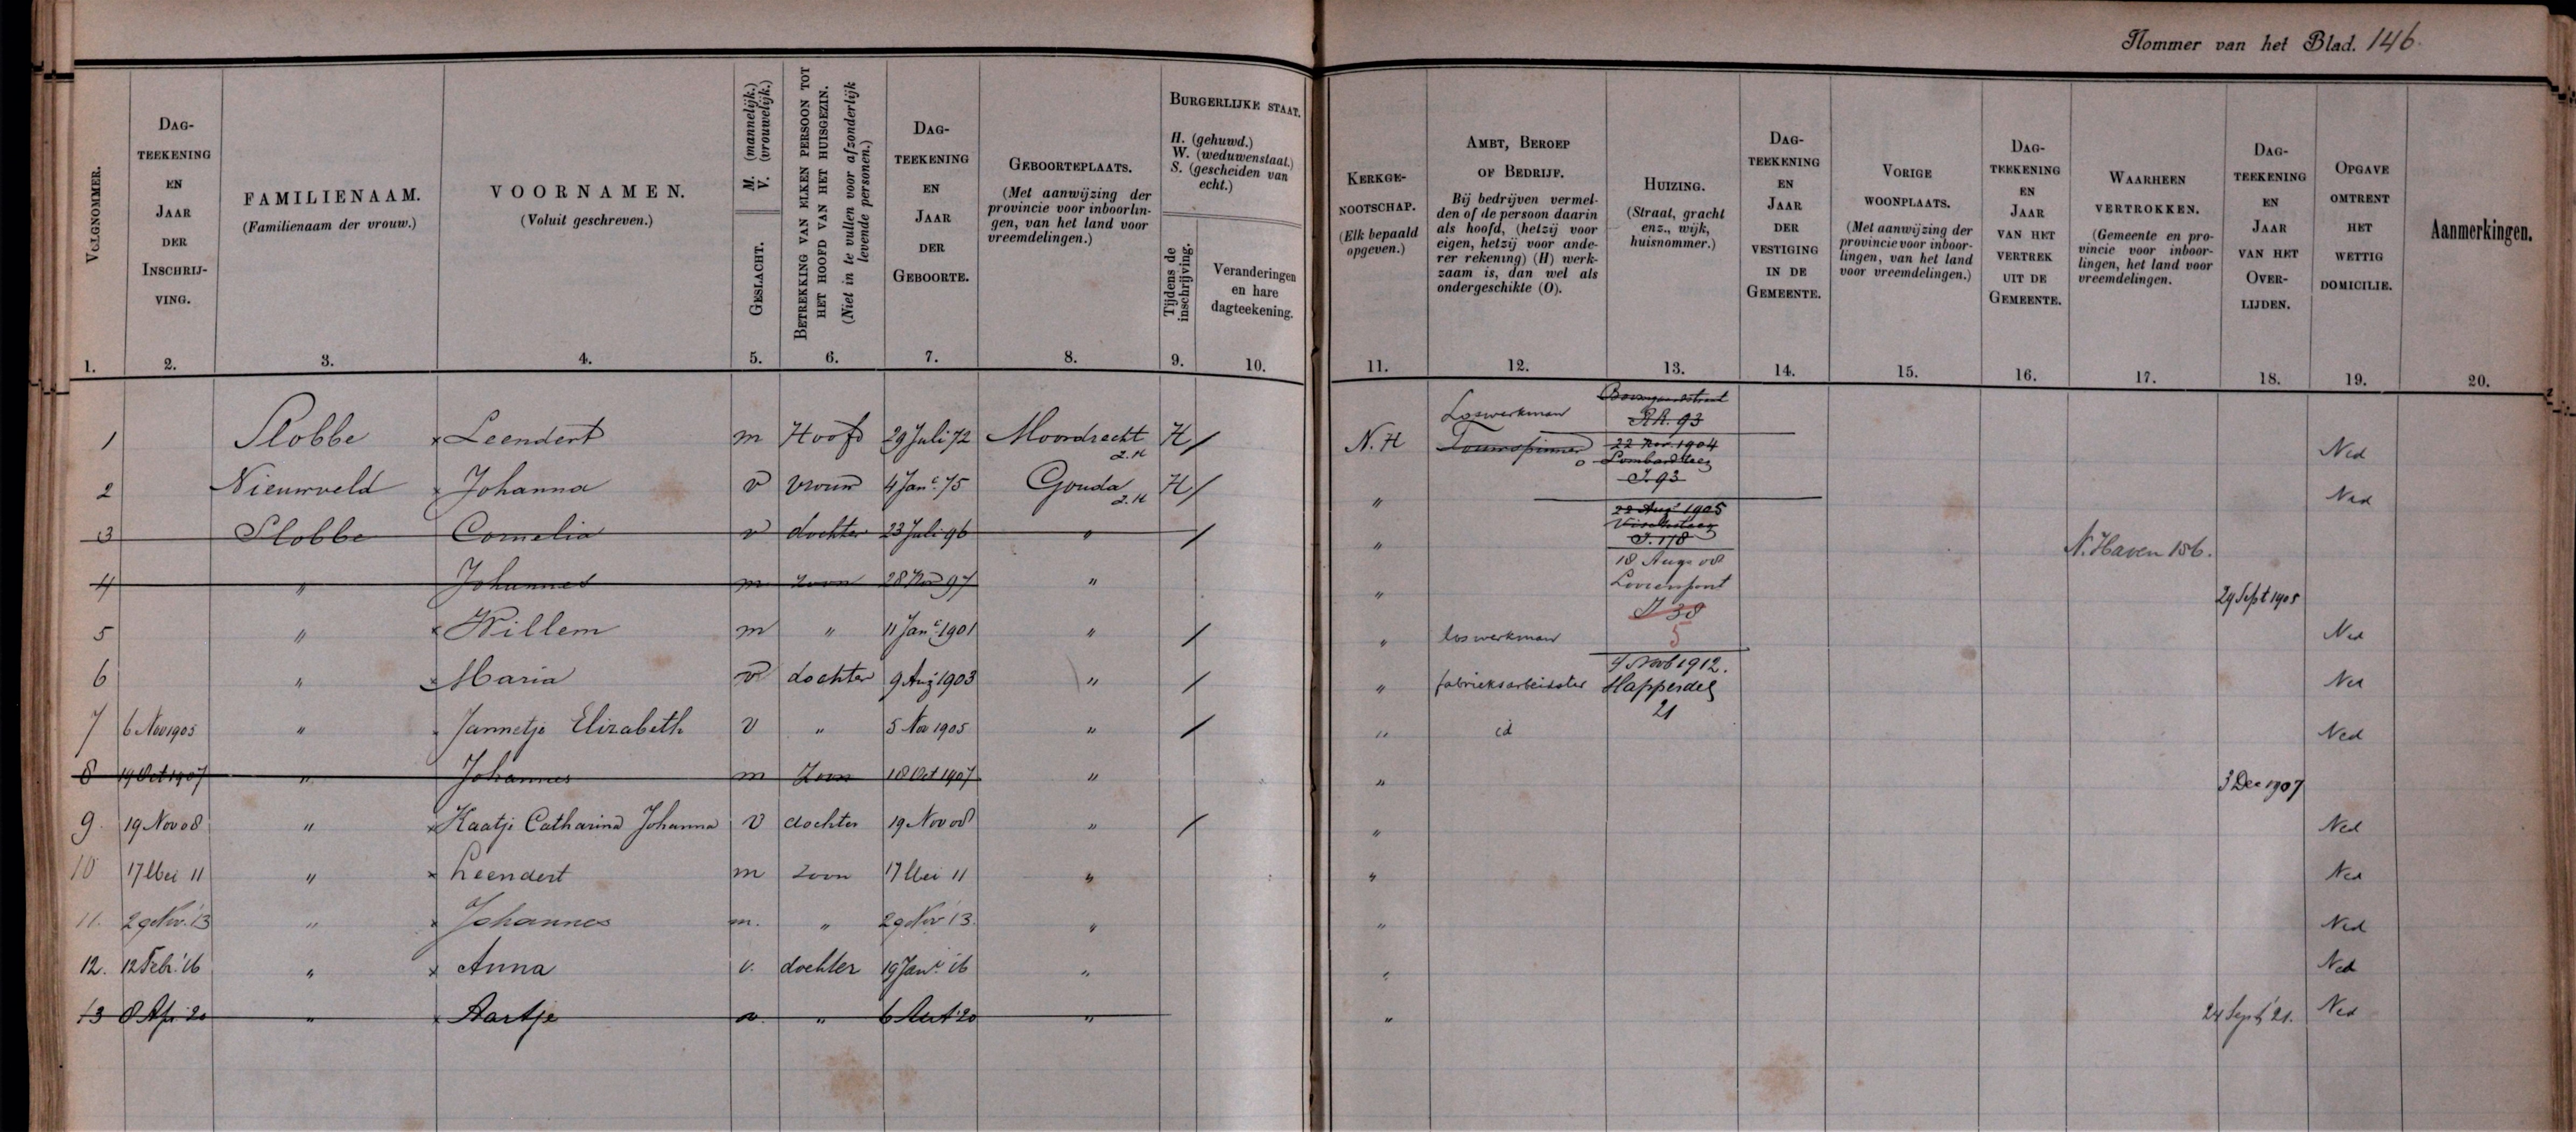 Nommer van het Blad. 146.
VOLGNOMMER.
DAG-TEEKENING EN JAAR DER INSCHRIJ-VING.
FAMILIENAAM.
(Familienaam der vrouw.)
VOORNAMEN.
(Voluit geschreven.)
GESLACHT. M. (mannelijk.) V. (vrouwelijk.)
BETREKKING VAN ELKEN PERSOON TOT HET HOOFD VAN HET HUISGEZIN.
(Niet in te vullen voor afzonderlijk levende personen.)
DAG-TEEKENING EN JAAR DER GEBOORTE.
GEBOORTEPLAATS.
(Met aanwijzing der provincie voor inboorlingen, van het land voor vreemdelingen.)
BURGERLIJKE STAAT.
H. (gehuwd.)
W. (weduwenstaat.)
S. (gescheiden van echt.)
Tijdens de inschrijving.
Veranderingen en hare dagteekening.
KERKGE-NOOTSCHAP.
(Elk bepaald opgeven.)
AMBT, BEROEP OF BEDRIJF.
Bij bedrijven vermelden of de persoon daarin als hoofd, (hetzij voor eigen, hetzij voor andere rekening) (H) werkzaam is, dan wel als ondergeschikte (O).
HUIZING.
(Straat, gracht enz., wijk, huisnommer.)
DAG-TEEKENING EN JAAR DER VESTIGING IN DE GEMEENTE.
VORIGE WOONPLAATS.
(Met aanwijzing der provincie voor inboorlingen, van het land voor vreemdelingen.)
DAG-TEEKENING EN JAAR VAN HET VERTREK UIT DE GEMEENTE.
WAARHEEN VERTROKKEN.
(Gemeente en provincie voor inboorlingen, het land voor vreemdelingen.
DAG-TEEKENING EN JAAR VAN HET OVER-LIJDEN.
OPGAVE OMTRENT HET WETTIG DOMICILIE.
Aanmerkingen.
1. 2. 3. 4. 5. 6. 7. 8. 9. 10. 11. 12. 13. 14. 15. 16. 17. 18. 19. 20.
1 Slobbe x Leendert m Hoofd 29 Juli 72 Moordrecht Z.H H / N.H Loswerkman Touwspinner o Ned
2 Nieuwveld x Johanna v vrouw 4 Jan. 75 Gouda Z.H H / " Ned
3 Slobbe Cornelia v dochter 23 Juli 96 " / " N. Haven 156.
4 " Johannes m zoon 28 Nov 97 " " 29 Sept 1905
5 " x Willem m " 11 Jan. 1901 " / " loswerkman Ned
6 " x Maria v dochter 9 Aug 1903 " / " fabrieksarbeidster Ned
7 6 Nov 1905 " Jannetje Elizabeth v " 5 Nov 1905 " / " id Ned
8 19 Oct 1907 " Johannes m zoon 18 Oct 1907 " " 3 Dec 1907
9. 19 Nov 08 " x Kaatje Catharina Johanna v dochter 19 Nov 08 " / " Ned
10 17 Mei 11 " x Leendert m zoon 17 Mei 11 " " Ned
11. 29 Nov. '13 " x Johannes m. " 29 Nov '13. " " Ned
12. 12 Febr. '16 " x Anna v. dochter 19 Jan. '16 " " Ned
13 8 Apr '20 " x Aartje v. " 6 '20 " " 24 Sept '21. Ned
R.A. 93
22 Nov. 1904
Lombardsteeg
I. 93
22 Aug 1905
Vischsteeg
I. 178
18 Aug 08
Looierspoort
I 38
5
4 Nov 1912.
Klapperdel
21